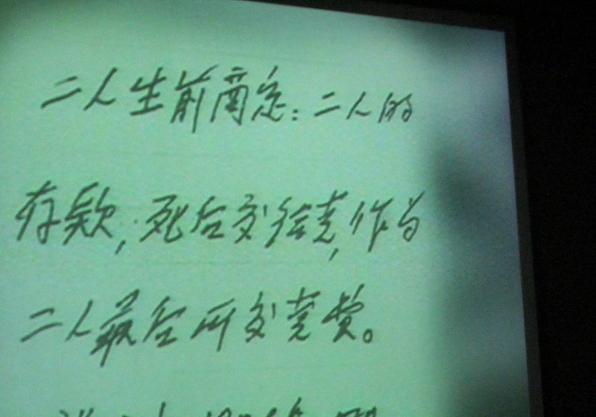 二人生前商定：二人的
存款，死后交给党，作为
二人最后所交党费。